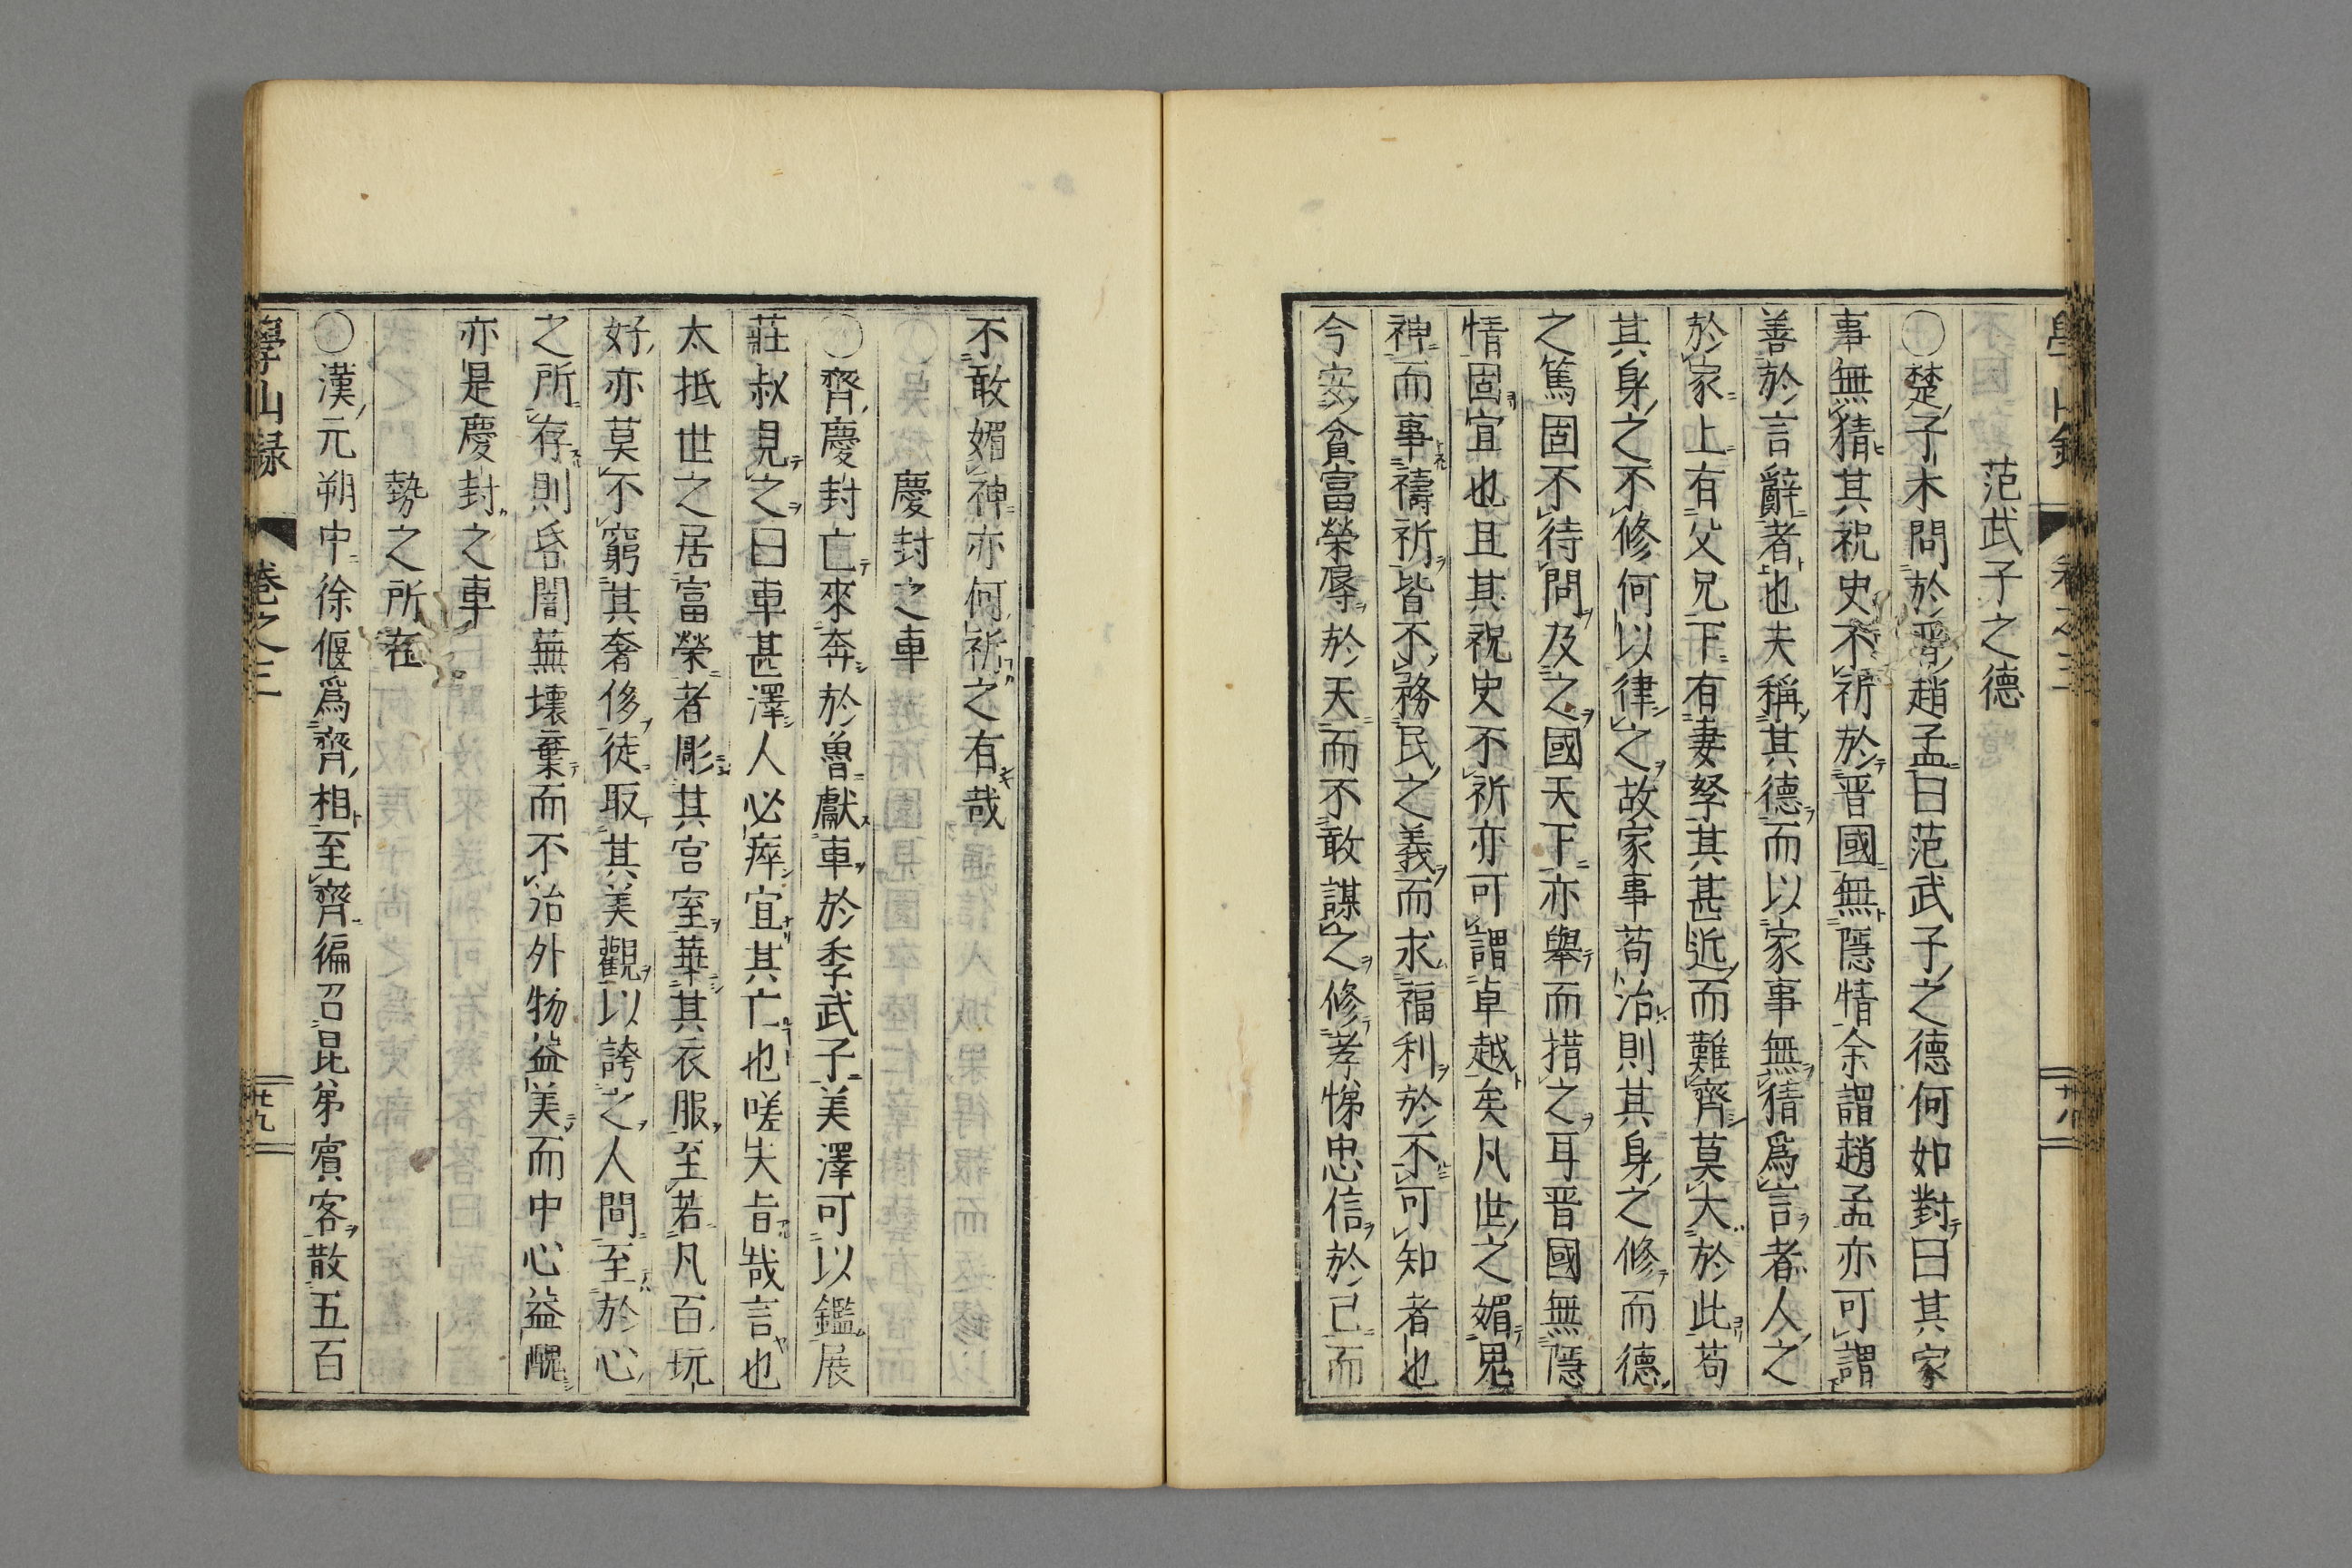 范武子之德
○楚子木問於晋趙孟曰范武子之德何如對曰其家
事無猜其祝史不祈於晋國無隱情余謂趙孟亦可謂
善於言辭者也夫稱其德而以家事無猜爲言者人之
於家上有父兄下有妻孥其甚近而難齊莫大於此苟
其身之不修何以律之故家事苟治則其身之修而德
之篤固不待問及之國天下亦舉而措之耳晋國無隱
情固宜也且其祝史不祈亦可謂卓越矣凡世之媚鬼
神而事禱祈皆不務民之義而求福利於不可知者也
今安貧富榮辱於天而不敢謀之修孝悌忠信於己而
學山錄 卷之三 廿八
不敢媚神亦何祈之有哉
慶封之車
○齊慶封亡來奔於魯獻車於季武子美澤可以鑑展
莊叔見之曰車甚澤人必瘁宜其亡也嗟夫旨哉言也
太抵世之居富榮者彫其宮室華其衣服至若凡百玩
好亦莫不窮其奢侈徒取其美觀以誇之人間至於心
之所存則昏闇蕪壞棄而不治外物益美而中心益醜
亦是慶封之車
勢之所在
○漢元朔中徐偃爲齊相至齊徧召昆弟賓客散五百
學山録 卷之三 廿九